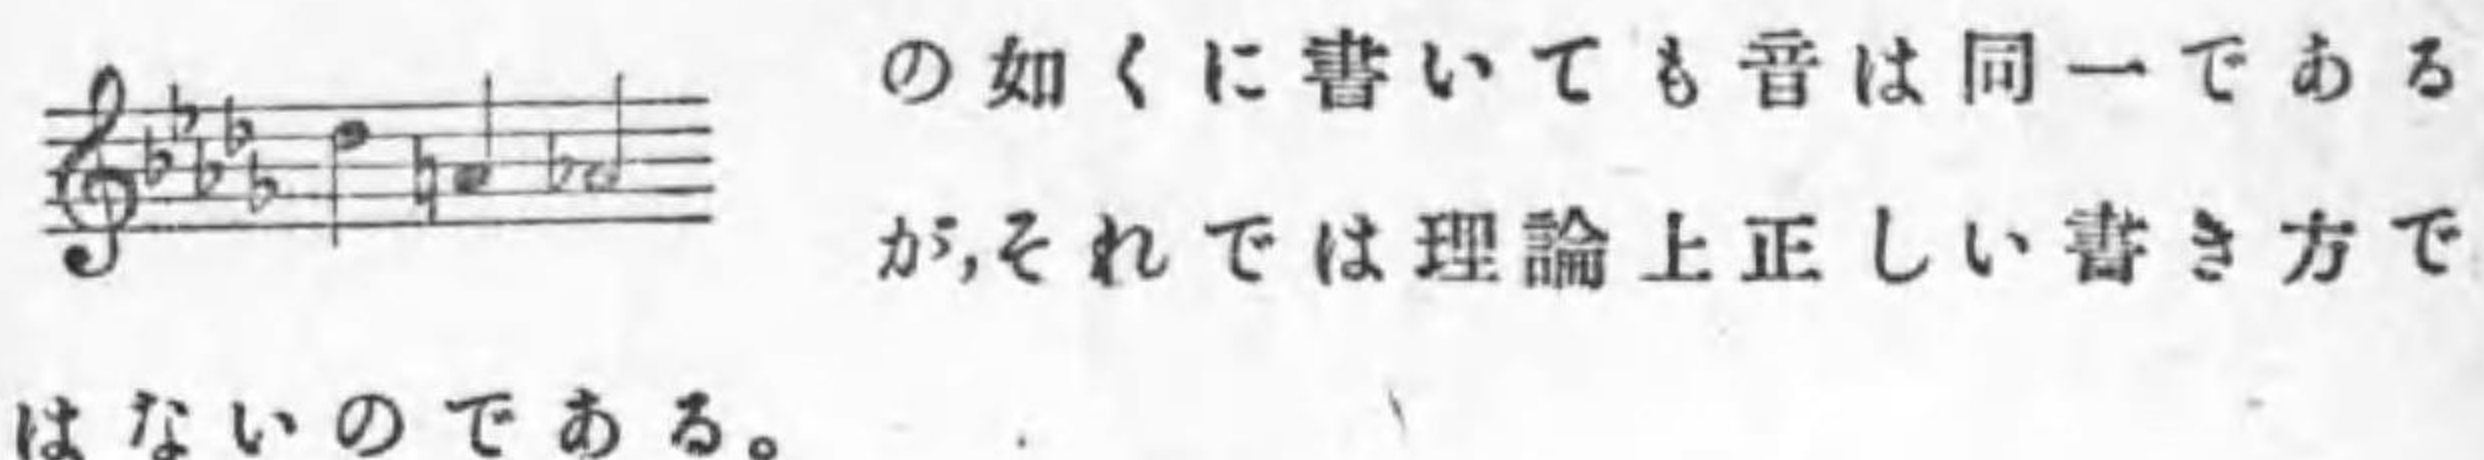 の如くに書いても音は同一である
が,それでは理論上正しい書き方で
はないのである。